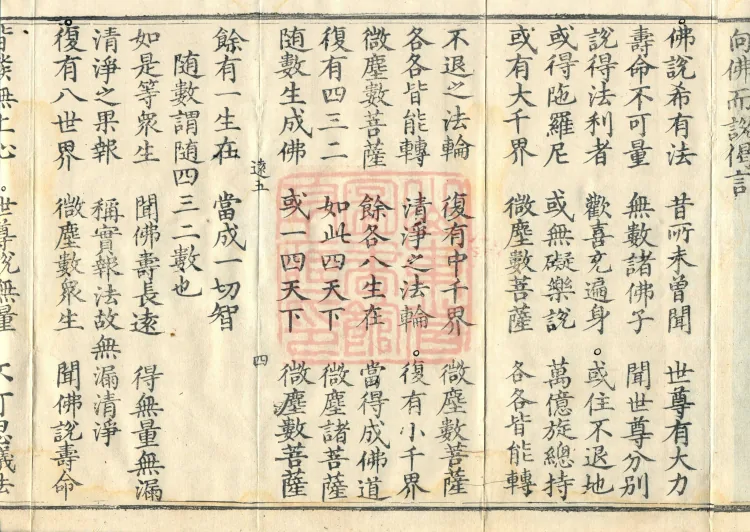 向佛而說偈言
佛說希有法 昔所未曾聞 世尊有大力
壽命不可量 無數諸佛子 聞世尊分別
說得法利者 歡喜充遍身 或住不退地
或得陁羅尼 或無礙樂說 萬億旋總持
或有大千界 微塵數菩薩 各各皆能轉
不退之法輪 復有中千界 微塵數菩薩
各各皆能轉 清淨之法輪 復有小千界
微塵數菩薩 餘各八生在 當得成佛道
復有四三二 如此四天下 微塵諸菩薩
随數生成佛 或一四天下 微塵數菩薩
遠五 四
餘有一生在 當成一切智
随數謂随四三二數也
如是等衆生 聞佛壽長遠 得無量無漏
清淨之果報 稱實報法故無漏清淨
復有八世界 微塵數衆生 聞佛說壽命
皆發無上心 世尊說無量 不可思議法